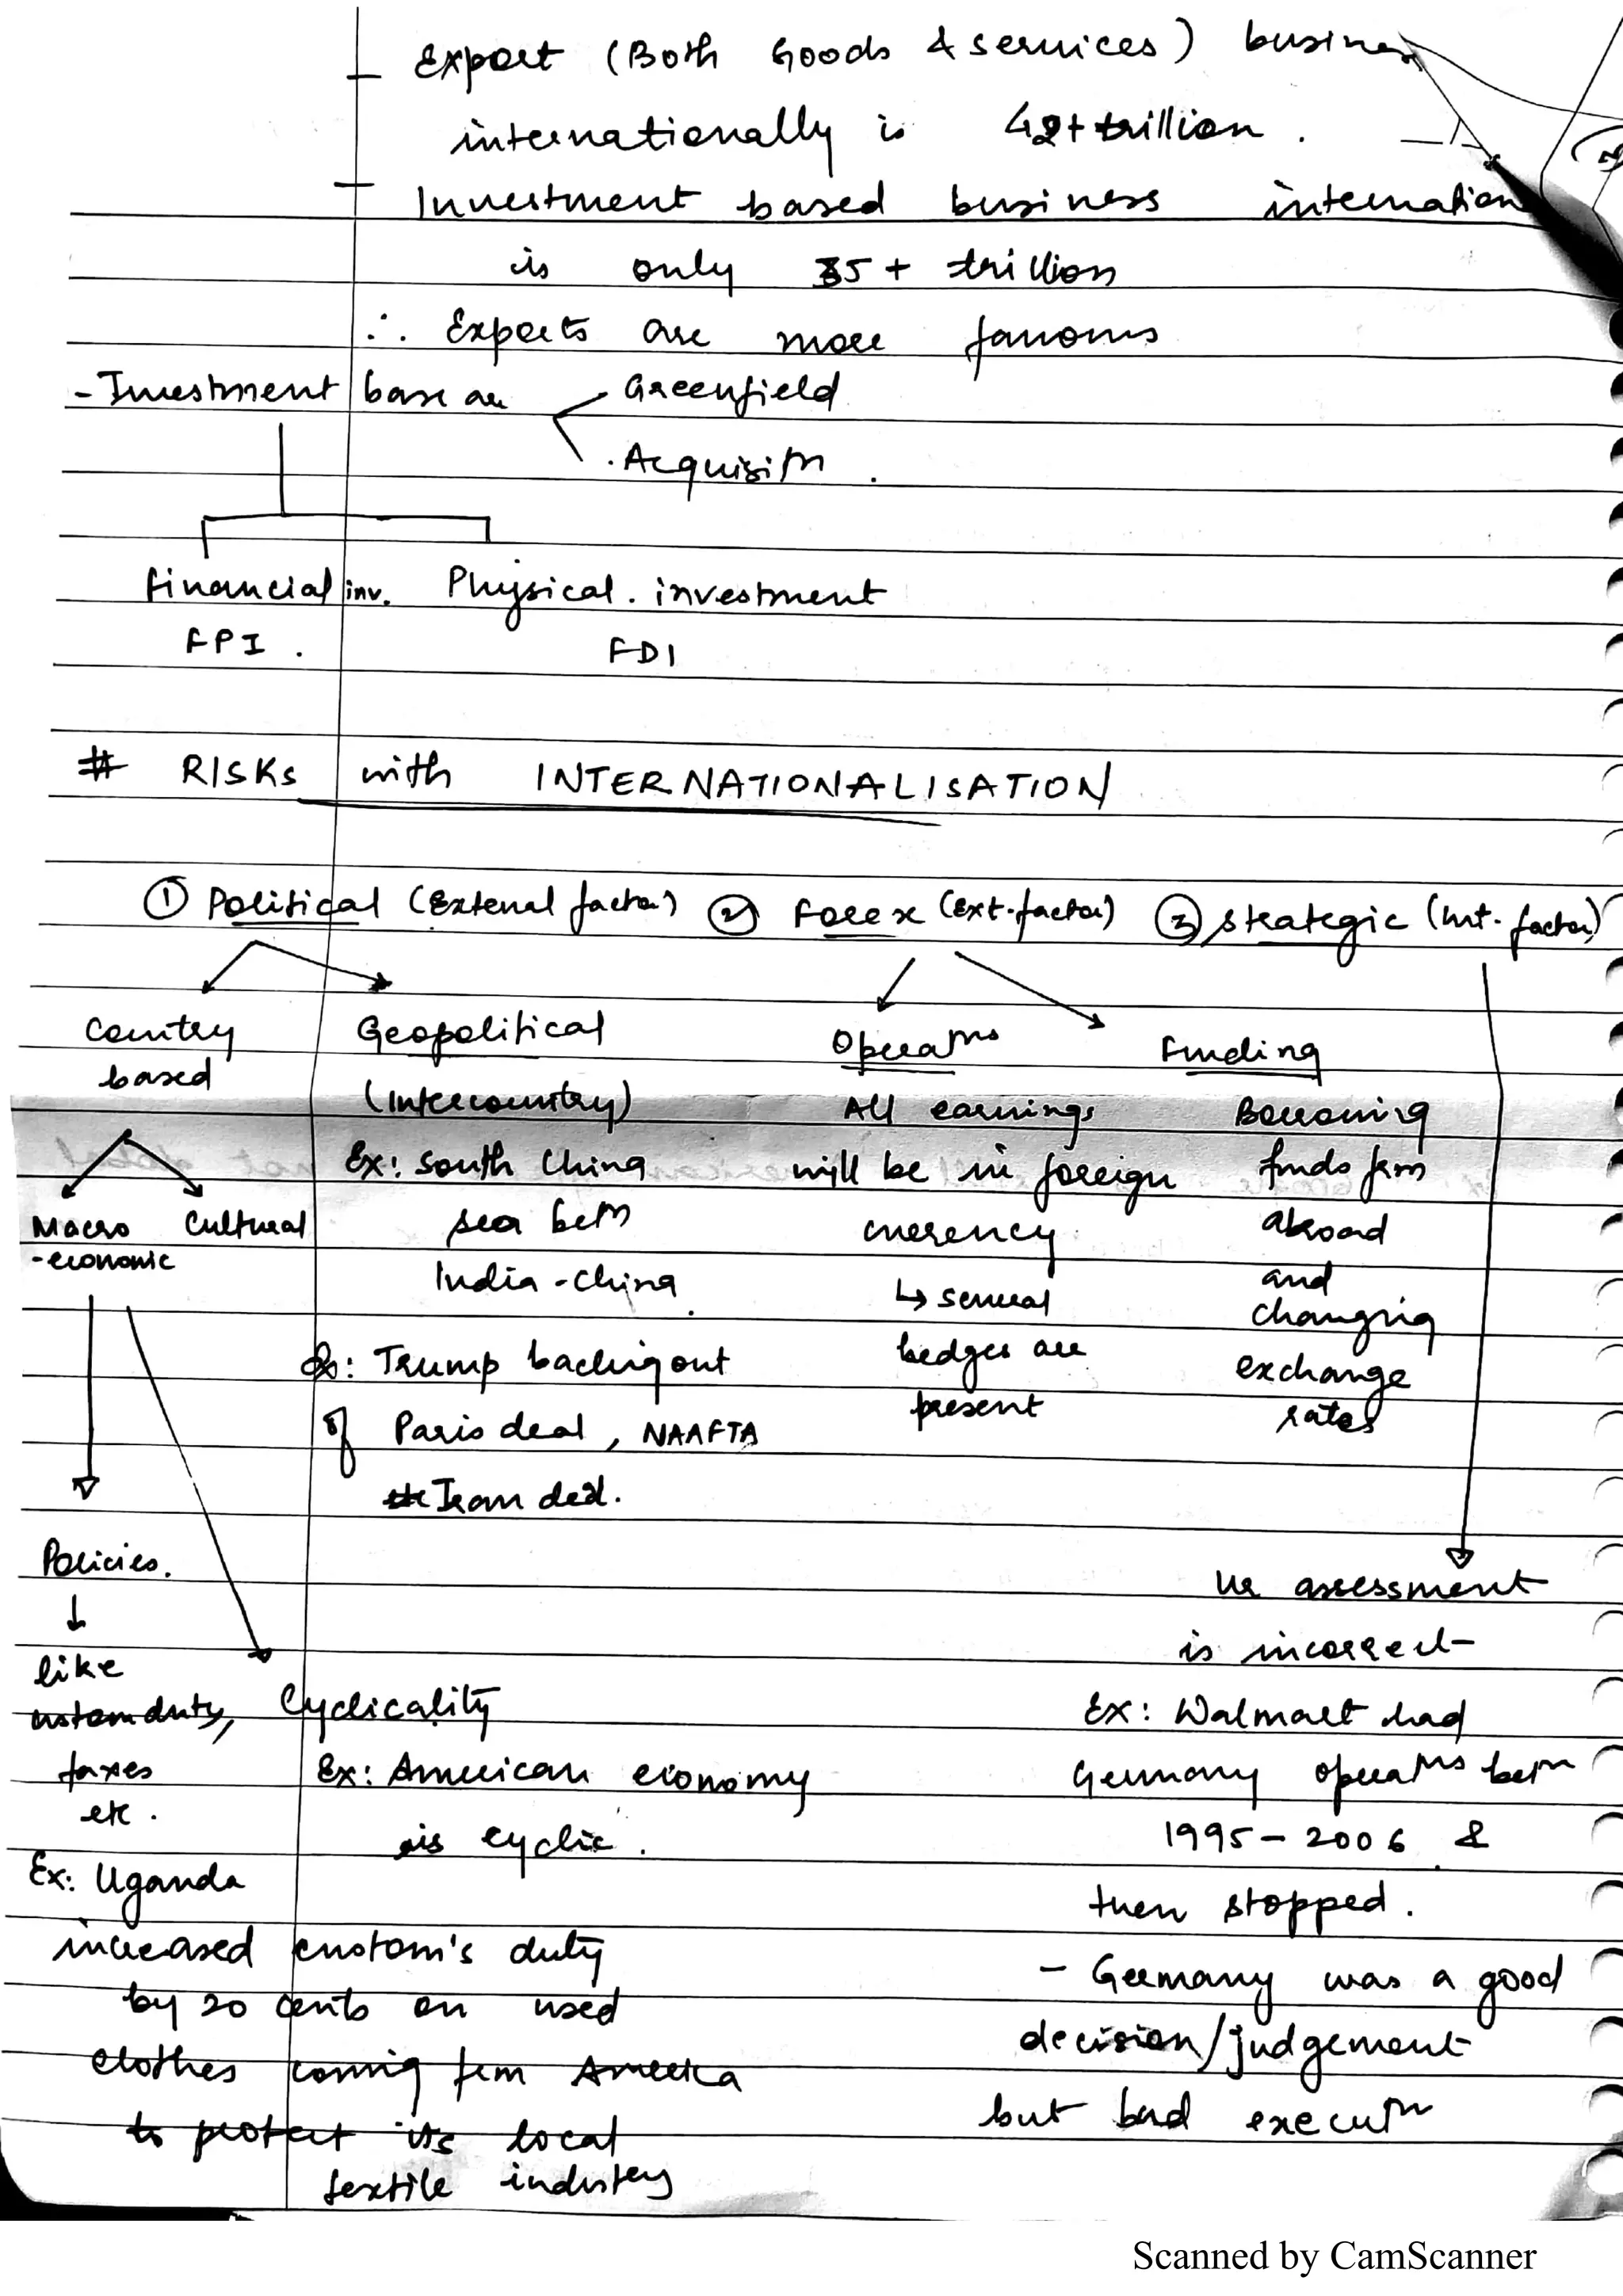 - Export (Both Goods & services) busines
internationally is 42+ trillion.
- Investment based business internation
is only 35+ trillion
∴ Exports are more famous
- Investment base are < Greenfield
. Acquisitn .
Financial inv. Physical . investment
FPI . FDI
# RISKS with INTERNATIONALISATION
① Political (External factor) ② Forex (Ext. factor) ③ Strategic (Int. factor)
Country
based
Macro
-economic
Cultural
Policies.
↓
like
custom duty,
taxes
etc.
Ex: Uganda
increased custom's duty
by 20 cents on used
clothes coming frm America
to protect its local
textile industry
Cyclicality
Ex: American economy
is cyclic.
Geopolitical
(Intercountry)
Ex: South China
sea betn
India - China.
Ex: Trump backing out
of Paris deal, NAAFTA
Iran deal.
Operatns
All earnings
will be in foreign
currency
↳ several
hedges are
present
Funding
Borrowing
funds frm
abroad
and
changing
exchange
rates
Ur assessment
is incorrect
Ex: Walmart had
Germany operatns betn
1995 - 2006 &
then stopped.
- Germany was a good
decision/judgement
but bad executn
Scanned by CamScanner